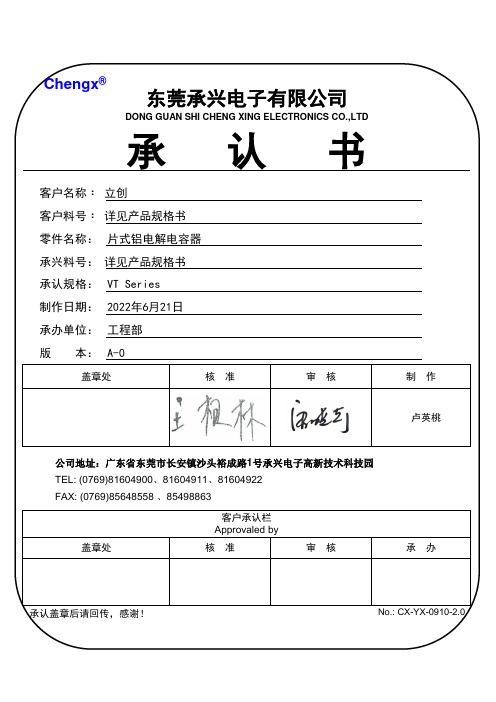 Chengx®
东莞承兴电子有限公司
DONG GUAN SHI CHENG XING ELECTRONICS CO.,LTD
承 认 书
客户名称： 立创
客户料号： 详见产品规格书
零件名称： 片式铝电解电容器
承兴料号： 详见产品规格书
承认规格： VT Series
制作日期： 2022年6月21日
承办单位： 工程部
版 本： A-0
盖章处 核 准 审 核 制 作
王桓林 卢英桃
公司地址：广东省东莞市长安镇沙头裕成路1号承兴电子高新技术科技园
TEL: (0769)81604900、81604911、81604922
FAX: (0769)85648558 、85498863
客户承认栏
Approvaled by
盖章处 核 准 审 核 承 办
承认盖章后请回传，感谢！ No.: CX-YX-0910-2.0